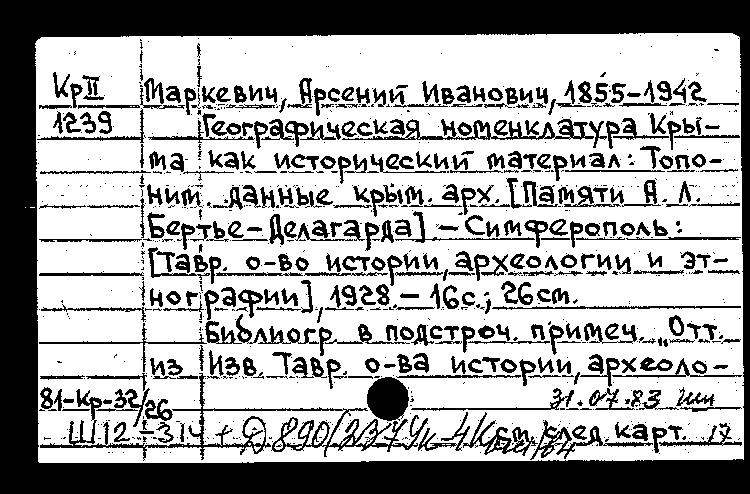 Кр II Маркевич, Арсений Иванович, 1855-1942
1239 Географическая номенклатура Кры-
ма как исторический материал: Топо-
ним. данные крым. арх. [Памяти А. Л.
Бертье-Делагарда]. - Симферополь:
[Тавр. о-во истории, археологии и эт-
нографии], 1928. - 16с.; 26см.
Библиогр. в подстроч. примеч. „Отт.
из Изв. Тавр. о-ва истории, археоло-
81-Кр-32/26 31.07.83
Ш12-314 + Д 890/2379 см. след. карт.